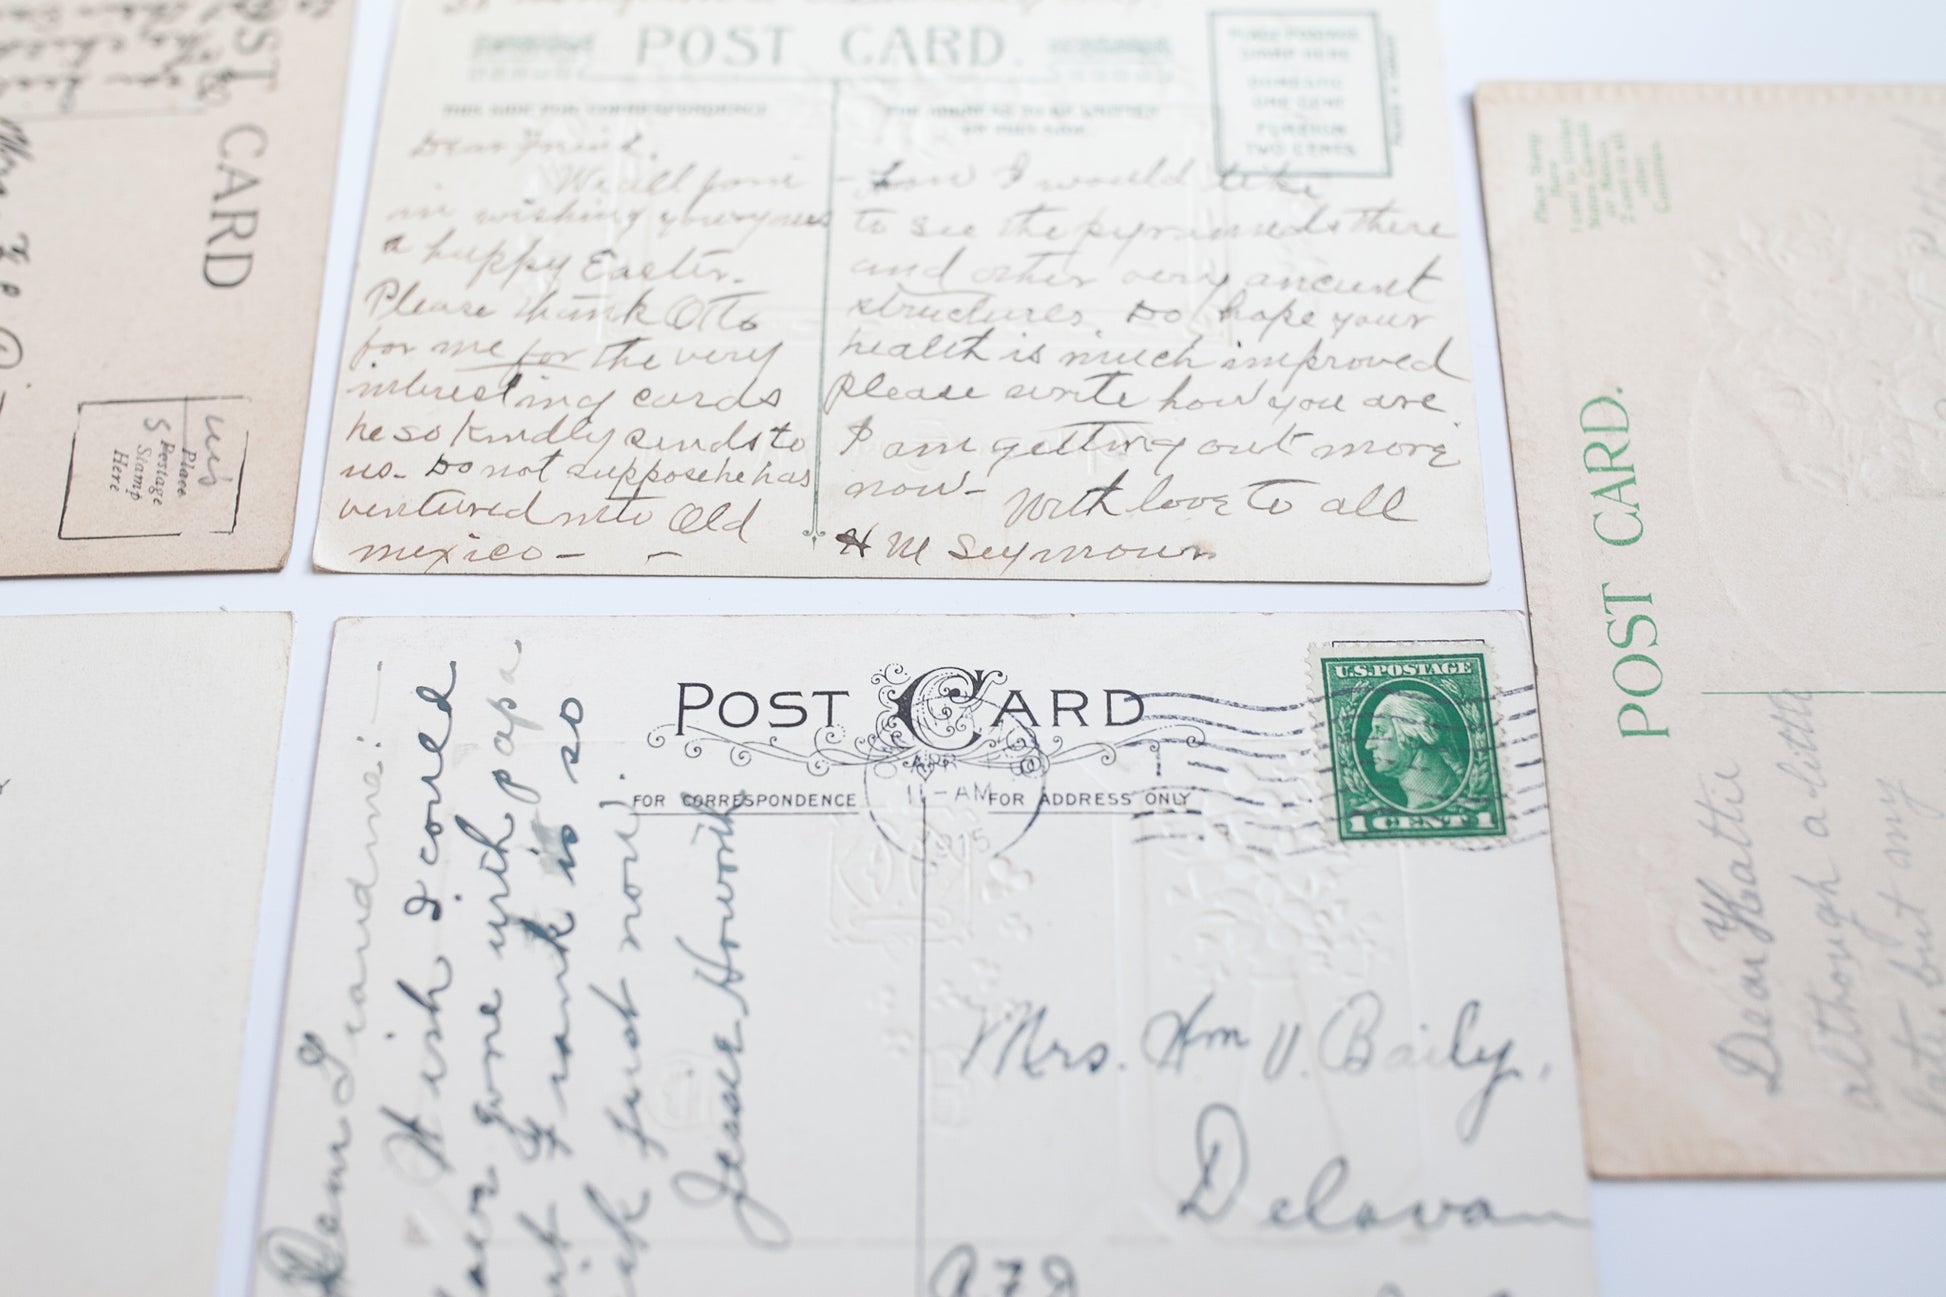 POST CARD
Mrs.
Place
Postage
Stamp
Here
POST CARD.
THIS SIDE FOR CORRESPONDENCE
PLACE POSTAGE
STAMP HERE
DOMESTIC
ONE CENT
FOREIGN
TWO CENTS
Dear Friend.
We all join
in wishing you
a happy Easter.
Please thank Otto
for me for the very
interesting cards
he so kindly sends to
us. Do not suppose he has
ventured into Old
mexico -
- how I would like
to see the pyrameds there
and other very ancient
structures. Do hope your
health is much improved
Please write how you are
I am getting out more
now - With love to all
H M Seymour
POST CARD.
Dear Hattie
although a little
late but my
POST CARD
FOR CORRESPONDENCE
FOR ADDRESS ONLY
11-AM
1915
U.S. POSTAGE
1 CENT 1
Dear :-
Wish I could
come with papa
but Frank is so
sick just now.
Jesse Howorth
Mrs. Wm V. Baily,
Delavan